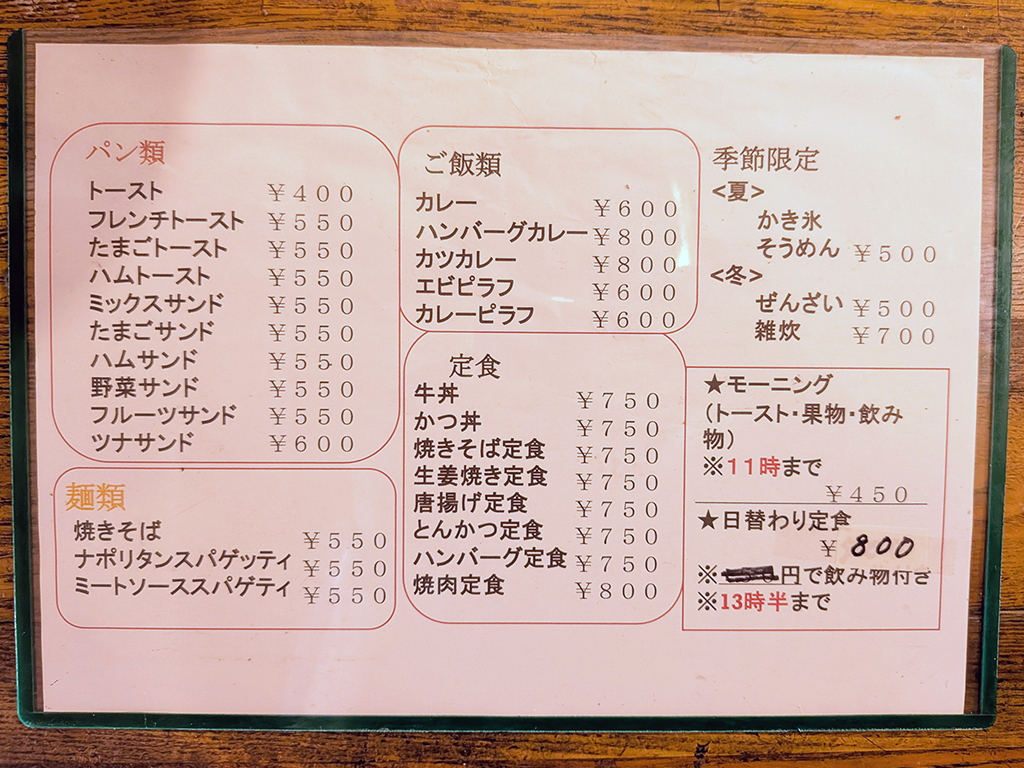 パン類
トースト ￥400
フレンチトースト ￥550
たまごトースト ￥550
ハムトースト ￥550
ミックスサンド ￥550
たまごサンド ￥550
ハムサンド ￥550
野菜サンド ￥550
フルーツサンド ￥550
ツナサンド ￥600
麺類
焼きそば ￥550
ナポリタンスパゲッティ ￥550
ミートソーススパゲティ ￥550
ご飯類
カレー ￥600
ハンバーグカレー ￥800
カツカレー ￥800
エビピラフ ￥600
カレーピラフ ￥600
定食
牛丼 ￥750
かつ丼 ￥750
焼きそば定食 ￥750
生姜焼き定食 ￥750
唐揚げ定食 ￥750
とんかつ定食 ￥750
ハンバーグ定食 ￥750
焼肉定食 ￥800
季節限定
<夏>
かき氷
そうめん ￥500
<冬>
ぜんざい ￥500
雑炊 ￥700
★モーニング
（トースト・果物・飲み
物）
※11時まで
￥450
★日替わり定食
￥800
※円で飲み物付き
※13時半まで